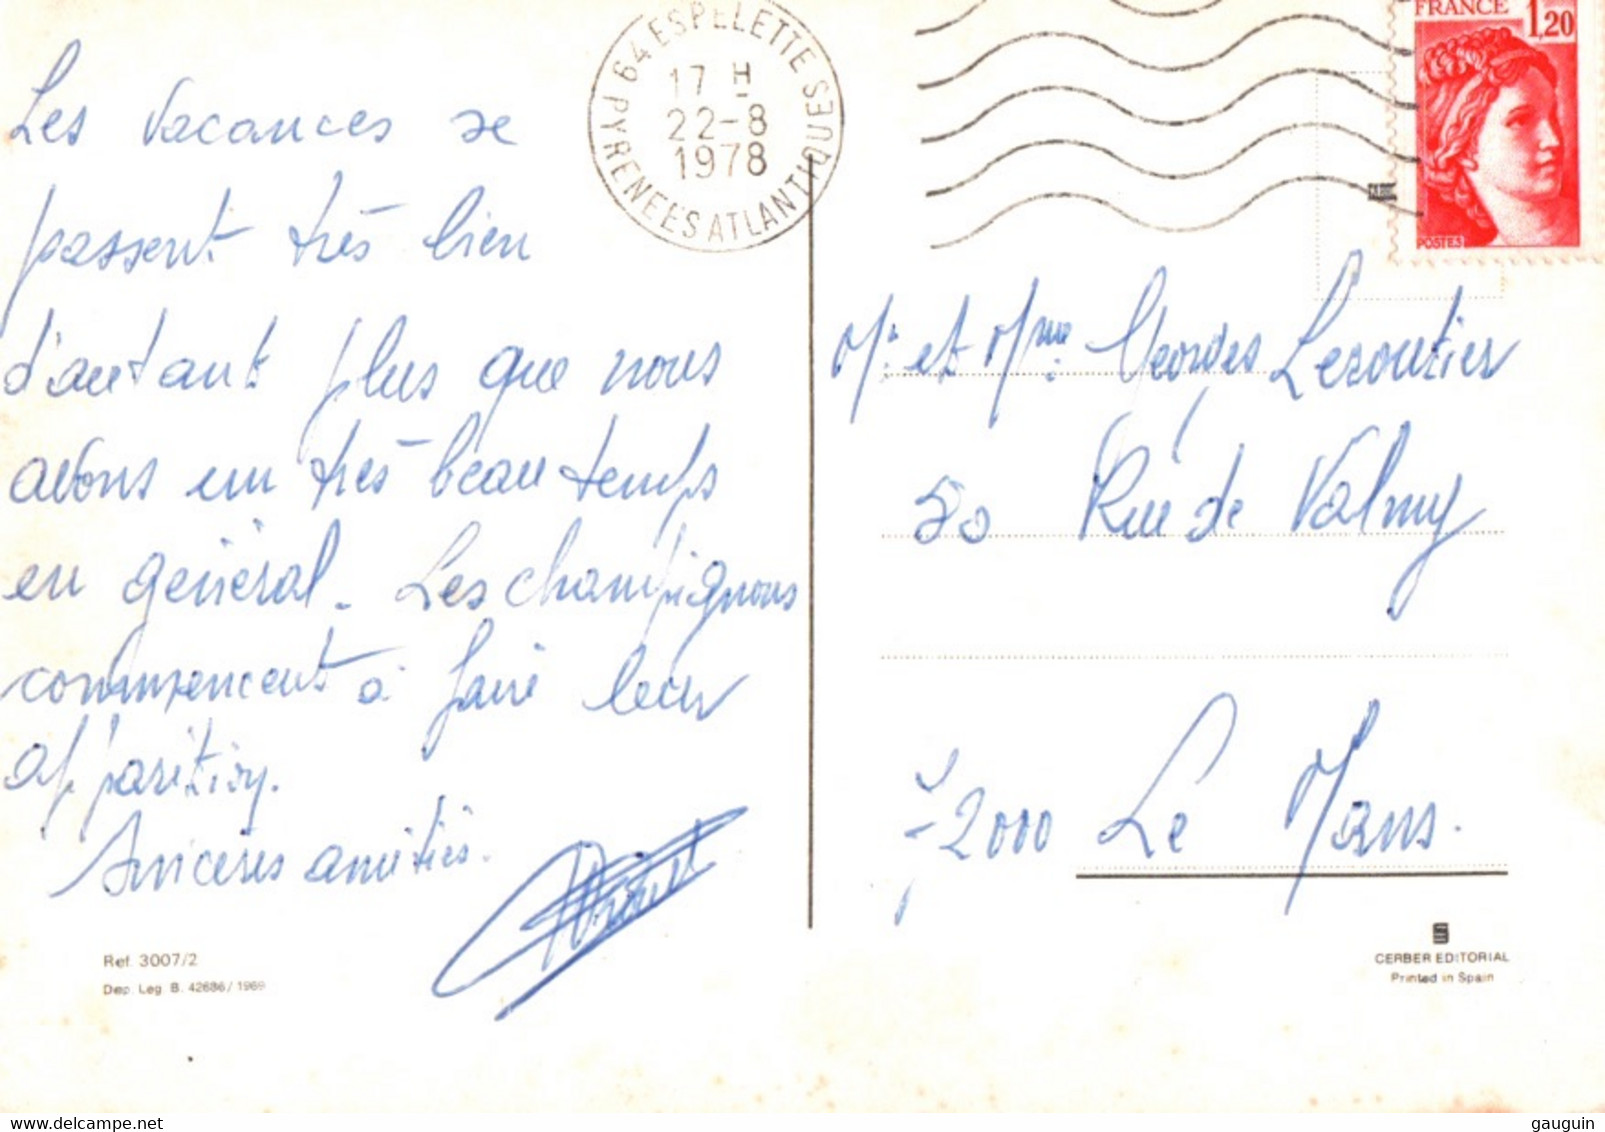 Les vacances se
passent très bien
d'autant plus que nous
avons un très beau temps
en général. Les champignons
commencent à faire leur
apparition.
Sincères amitiés.
Ref. 3007/2
Dep. Leg. B. 42686/1969
64 ESPELETTE PYRENEES ATLANTIQUES
17 H
22-8
1978
FRANCE 1,20
POSTES
Mr et Mme Georges Lezoutier
50 Rue de Valmy
72000 Le Mans.
CERBER EDITORIAL
Printed in Spain
gauguin